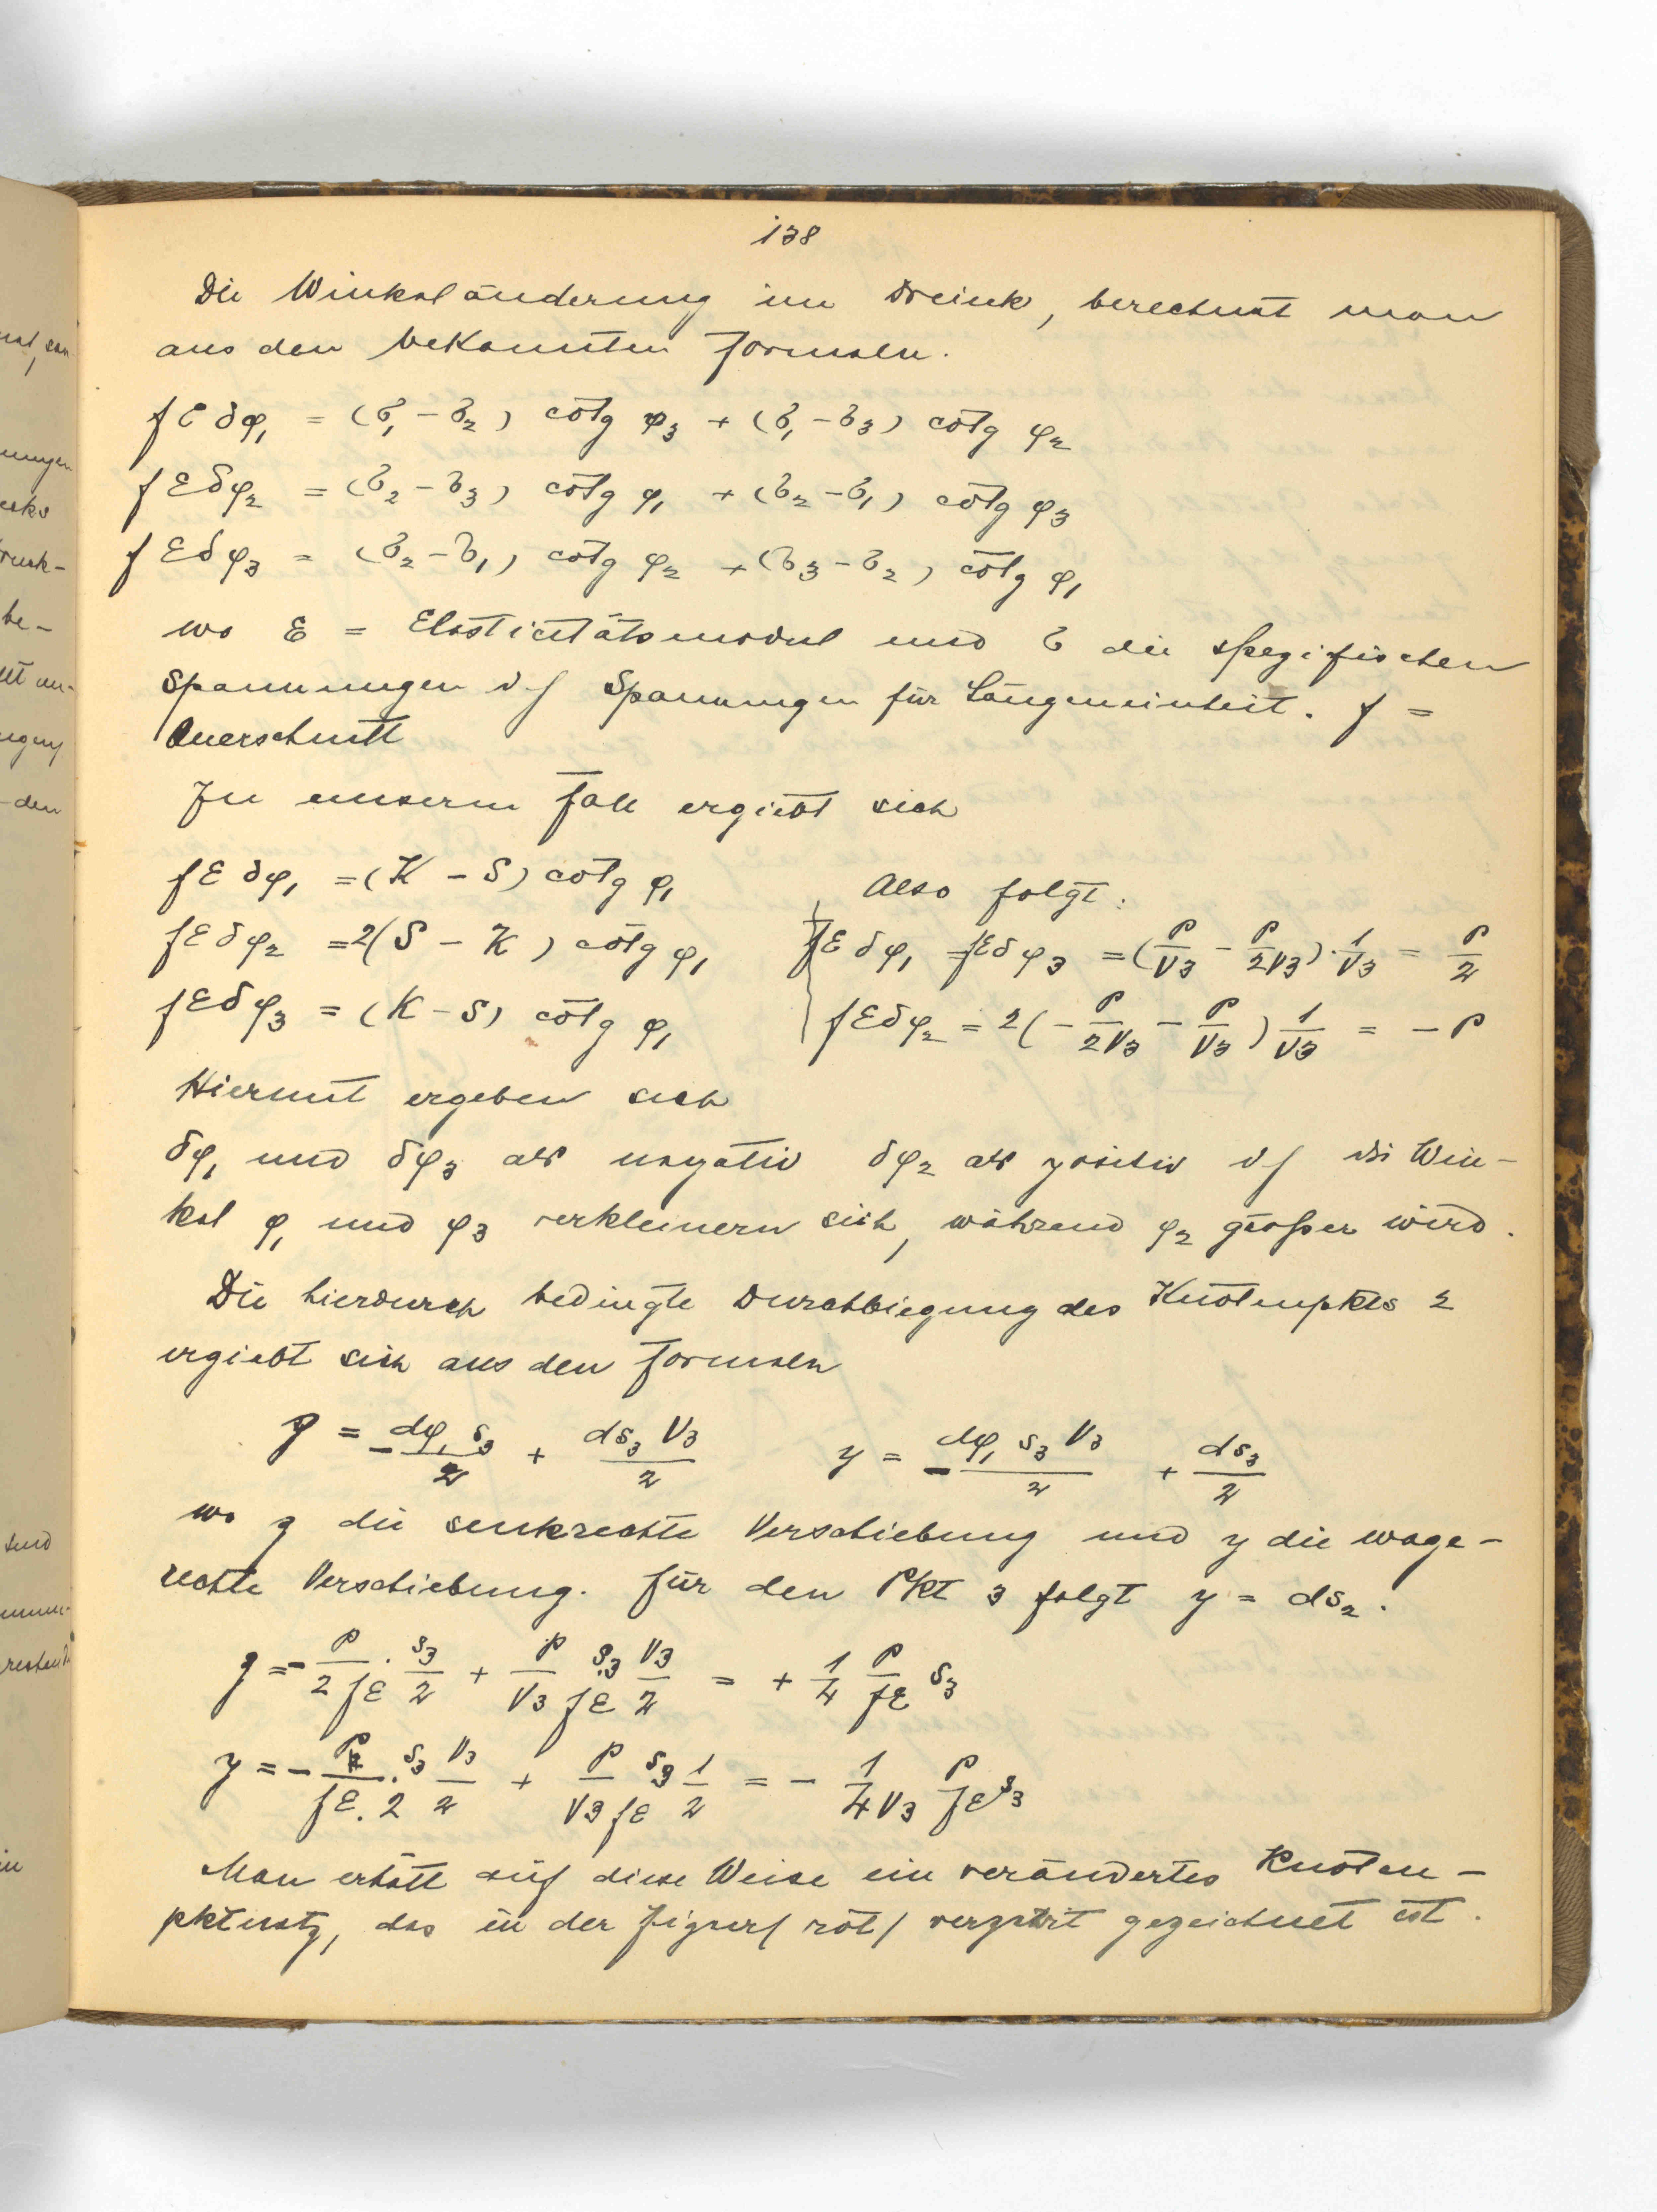 138
Die Winkeländerung im Dreieck, berechnet man
aus den bekannten Formeln.
f E δφ₁ = (σ₁ - σ₂) cotg φ₃ + (σ₁ - σ₃) cotg φ₂
f E δφ₂ = (σ₂ - σ₃) cotg φ₁ + (σ₂ - σ₁) cotg φ₃
f E δφ₃ = (σ₂ - σ₁) cotg φ₂ + (σ₃ - σ₂) cotg φ₁
wo E = Elasticitätsmodul und σ die spezifischen
Spannungen d/ Spannungen für Längeneinheit. f =
Querschnitt
In unserm Fall ergiebt sich
f E δφ₁ = (K - S) cotg φ₁
f E δφ₂ = 2(S - K) cotg φ₁
f E δφ₃ = (K - S) cotg φ₁
Also folgt:
f E δφ₁ = f E δφ₃ = (P/√3 - P/2√3) · 1/√3 = P/2
f E δφ₂ = 2(- P/2√3 - P/√3) 1/√3 = - P
Hiermit ergeben sich
δφ₁ und δφ₃ als negativ δφ₂ als positiv d/ die Win-
kel φ₁ und φ₃ verkleinern sich, während φ₂ größer wird.
Die hierdurch bedingte Durchbiegung des Knotenpkts 2
ergiebt sich aus den Formeln
z = - dφ₁ s₃/2 + ds₃ √3/2 y = - dφ₁ s₃ √3/2 + ds₃/2
wo z die senkrechte Verschiebung und y die wage-
rechte Verschiebung. Für den Pkt 3 folgt y = ds₂.
z = - P/2fE · s₃/2 + P/√3 fE s₃ √3/2 = + 1/4 P/fE s₃
y = - P/fE.2 · s₃ √3/2 + P/√3 fE s₃ 1/2 = - 1/4√3 P/fE s₃
Man erhält auf diese Weise ein verändertes Knoten-
pktnetz, das in der Figur/ rot/ verzerrt gezeichnet ist.